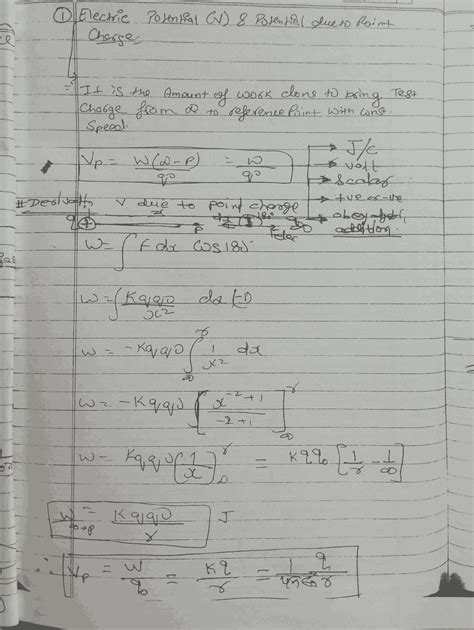 ① Electric Potential (V) & Potential due to Point
Charge.
It is the Amount of work done to bring Test
Charge from ∞ to reference Point with Cons
Speed.
Vp = W(∞-P)/q0 = W/q0
→ J/C
→ volt
→ Scalar
→ +ve or -ve
addition.
# Derivation V due to point charge
W = ∫ F dx cos 180
W = ∫ Kqq0/x² dx (-1)
W = -Kqq0 ∫ 1/x² dx
W = -Kqq0 [x^(-2+1)/(-2+1)]
W = Kqq0 (1/x) = Kqq0 [1/r - 1/∞]
W = Kqq0/r J
∴ Vp = W/q0 = Kq/r = 1/4π∈0 q/r